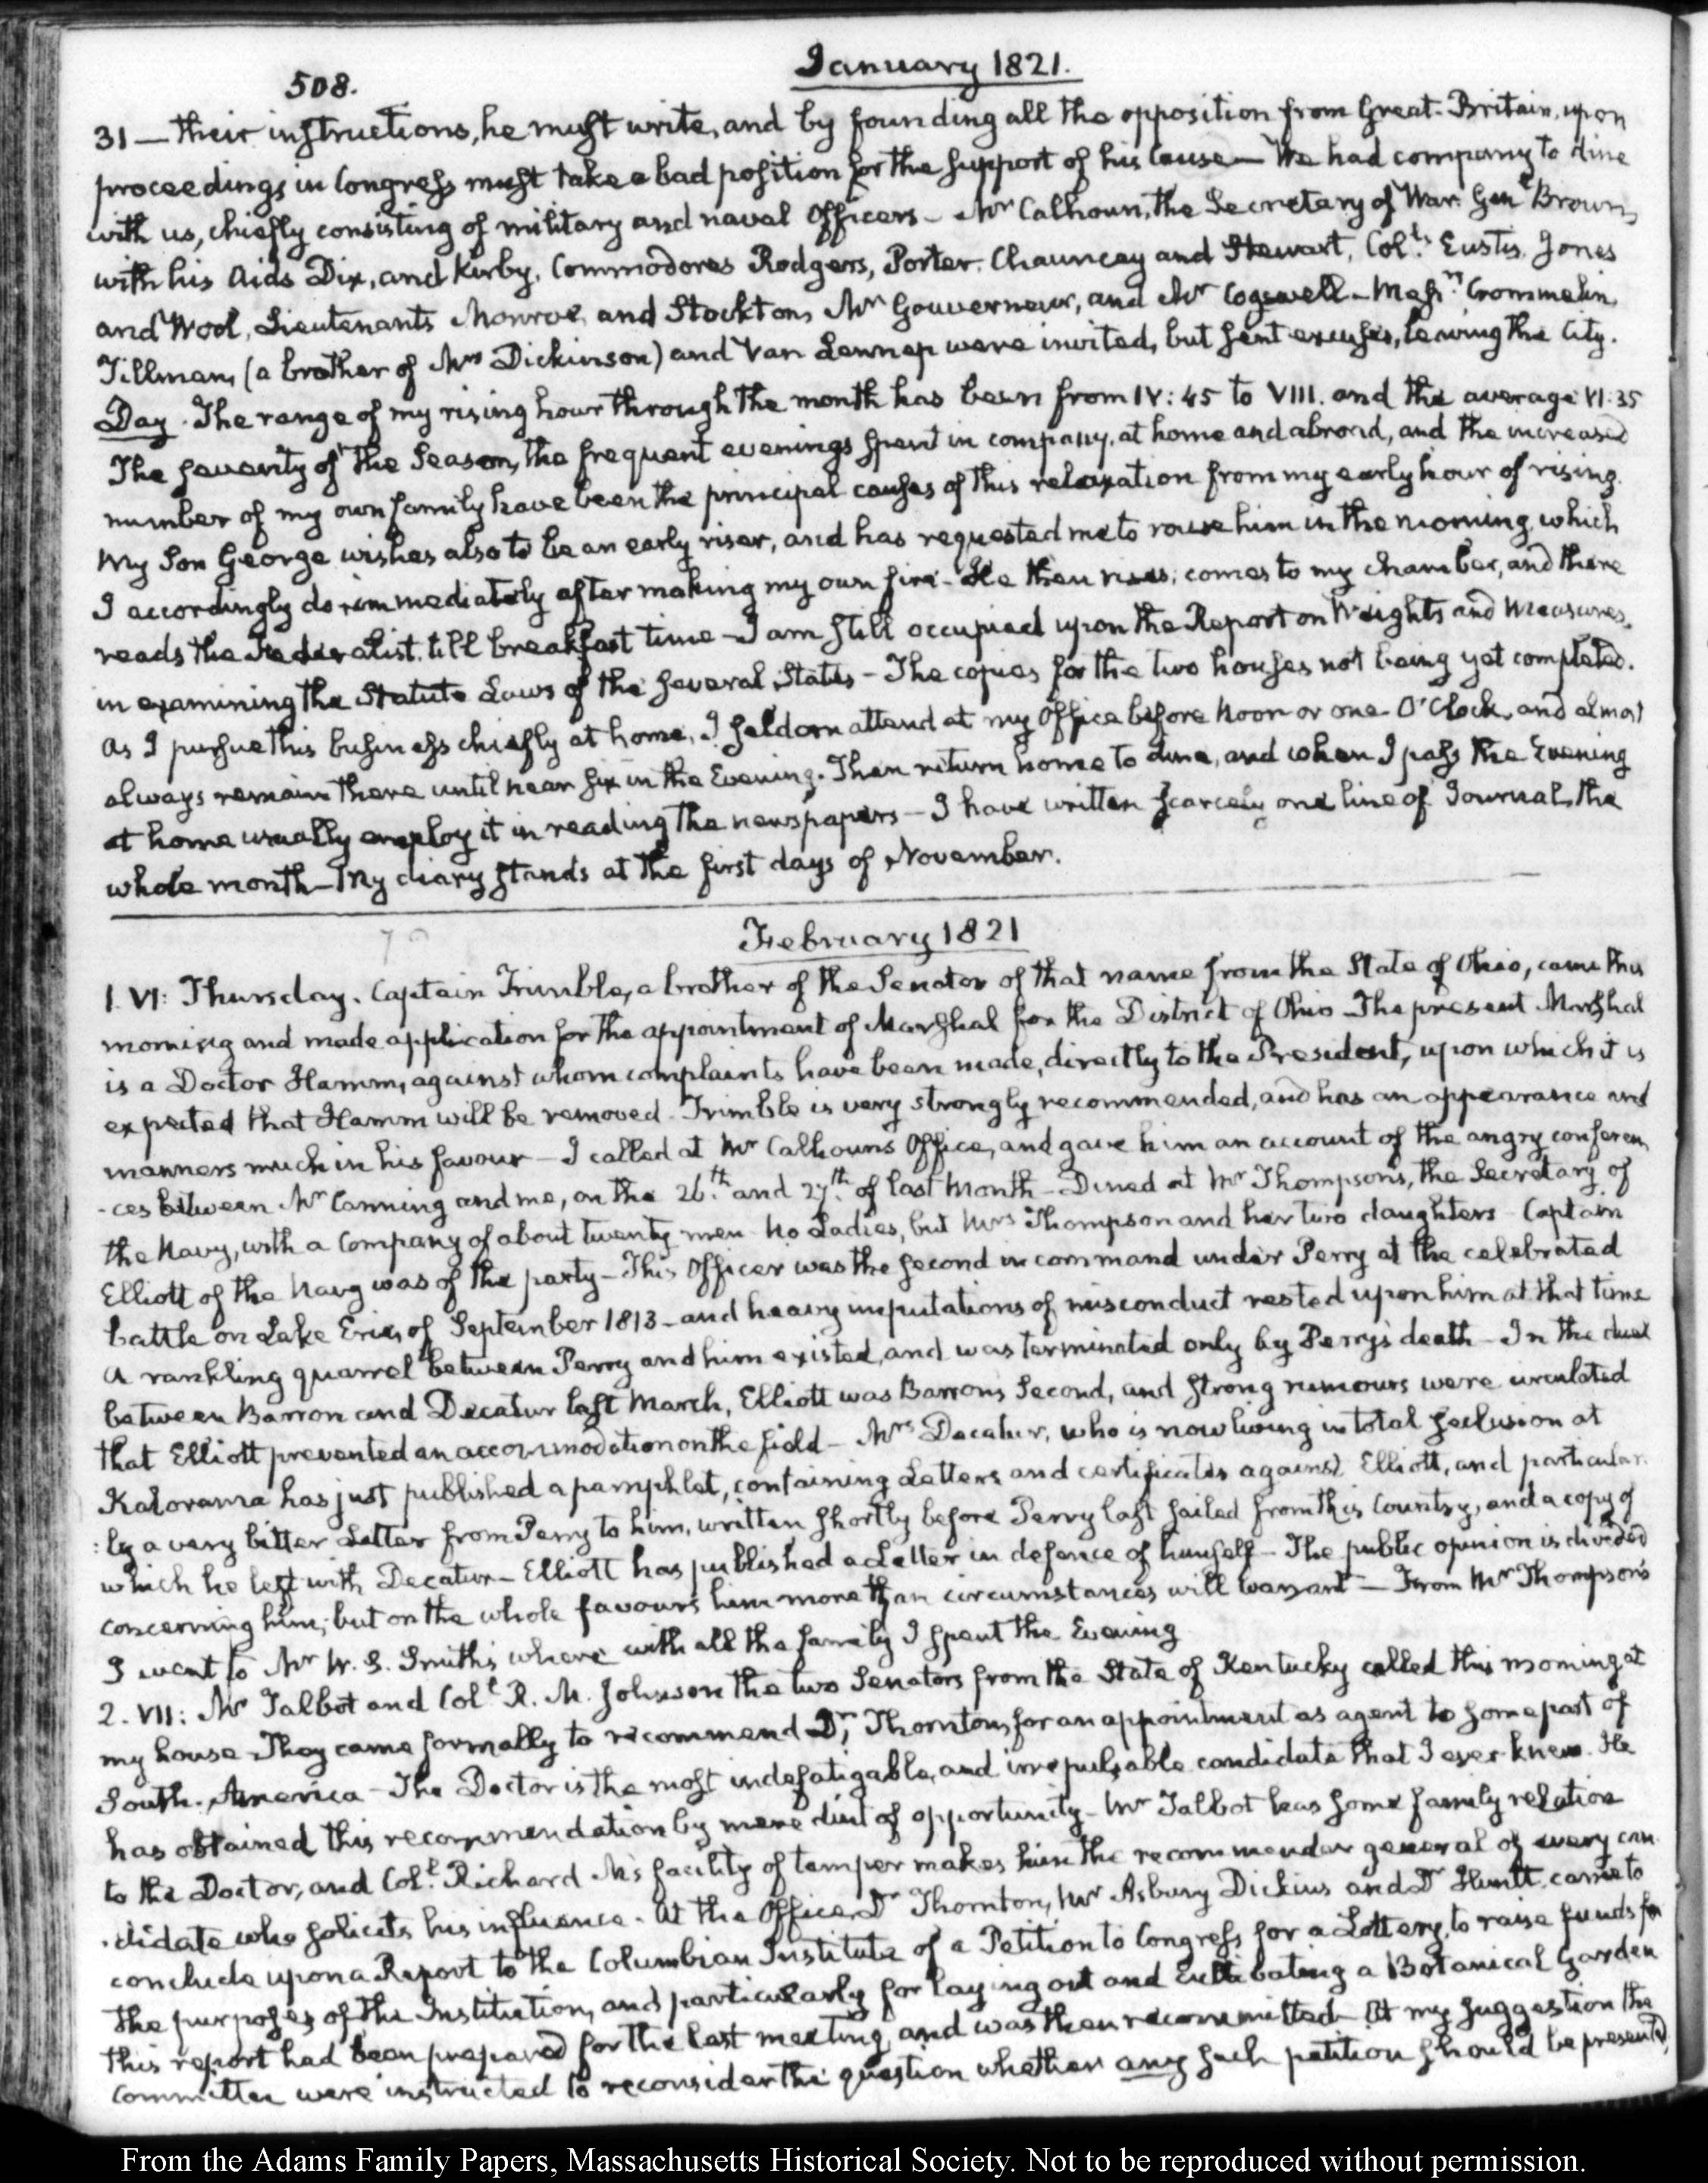 508.
January 1821.
31 — their instructions, he must write, and by founding all the opposition from Great-Britain, upon
proceedings in Congress must take a bad position for the support of his Cause — We had company to dine
with us, chiefly consisting of military and naval Officers — Mr Calhoun, the Secretary of War. Genl Brown,
with his Aids Dix, and Kirby, Commodores Rodgers, Porter, Chauncey and Stewart, Cols Eustis, Jones
and Wool, Lieutenants Monroe, and Stockton, Mr Gouverneur, and Mr Cogswell — Messrs Crommelin,
Tillman, (a brother of Mrs Dickinson) and Van Lennep were invited, but sent excuses, leaving the City.
Day. The range of my rising hour through the month has been from IV: 45 to VIII. and the average VI: 35
The severity of the Season, the frequent evenings spent in company, at home and abroad, and the increased
number of my own family have been the principal causes of this relaxation from my early hour of rising.
My Son George wishes also to be an early riser, and has requested me to rouse him in the morning, which
I accordingly do immediately after making my own fire — He then rises; comes to my chamber, and there
reads the Federalist, till breakfast time — I am still occupied upon the Report on Weights and Measures,
in examining the Statute Laws of the several States — The copies for the two houses not being yet completed.
As I pursue this business chiefly at home, I seldom attend at my Office before Noon or one O'Clock, and almost
always remain there until near six in the Evening. Then return home to dine, and when I pass the Evening
at home usually employ it in reading the newspapers — I have written scarcely one line of Journal, the
whole month — My diary stands at the first days of November.
February 1821
1. VI: Thursday. Captain Trimble, a brother of the Senator of that name from the State of Ohio, came this
morning and made application for the appointment of Marshal for the District of Ohio — The present Marshal
is a Doctor Hamm, against whom complaints have been made, directly to the President, upon which it is
expected that Hamm will be removed. Trimble is very strongly recommended, and has an appearance and
manners much in his favour — I called at Mr Calhouns Office, and gave him an account of the angry conferen
-ces between Mr Canning and me, on the 26th and 27th of last Month — Dined at Mr Thompson's, the Secretary of
the Navy, with a Company of about twenty men — No Ladies, but Mrs Thompson and her two daughters — Captain
Elliott of the Navy was of the party — This Officer was the second in command under Perry at the celebrated
battle on Lake Erie, of September 1813 — and heavy imputations of misconduct rested upon him at that time
A rankling quarrel between Perry and him existed, and was terminated only by Perry's death — In the duel
between Barron and Decatur last March, Elliott was Barron's Second, and strong rumours were circulated
that Elliott prevented an accommodation on the field — Mrs Decatur, who is now living in total seclusion at
Kalorama has just published a pamphlet, containing Letters and certificates against Elliott, and particular
:ly a very bitter Letter from Perry to him, written shortly before Perry last sailed from this Country, and a copy of
which he left with Decatur — Elliott has published a Letter in defence of himself — The public opinion is divided
concerning him; but on the whole favours him more than circumstances will warrant — From Mr Thompson's
I went to Mr W. S. Smith's where with all the family I spent the Evening
2. VII: Mr Talbot and Coll R. M. Johnson the two Senators from the State of Kentucky called this morning at
my house. They came formally to recommend Dr Thornton, for an appointment as agent to some part of
South-America — The Doctor is the most indefatigable, and irrepulsable candidate that I ever knew. He
has obtained this recommendation by mere dint of opportunity — Mr Talbot has some family relation
to the Doctor, and Coll Richard M's facility of temper makes him the recommender general of every can
-didate who solicits his influence. At the Office, Dr Thornton, Mr Asbury Dickins and Dr Huntt, came to
conclude upon a Report to the Columbian Institute of a Petition to Congress for a Lottery, to raise funds for
the purposes of the Institution, and particularly for laying out and cultivating a Botanical Garden
this report had been prepared for the last meeting, and was then recommitted — At my suggestion the
Committee were instructed to reconsider the question whether any such petition should be presented,
From the Adams Family Papers, Massachusetts Historical Society. Not to be reproduced without permission.